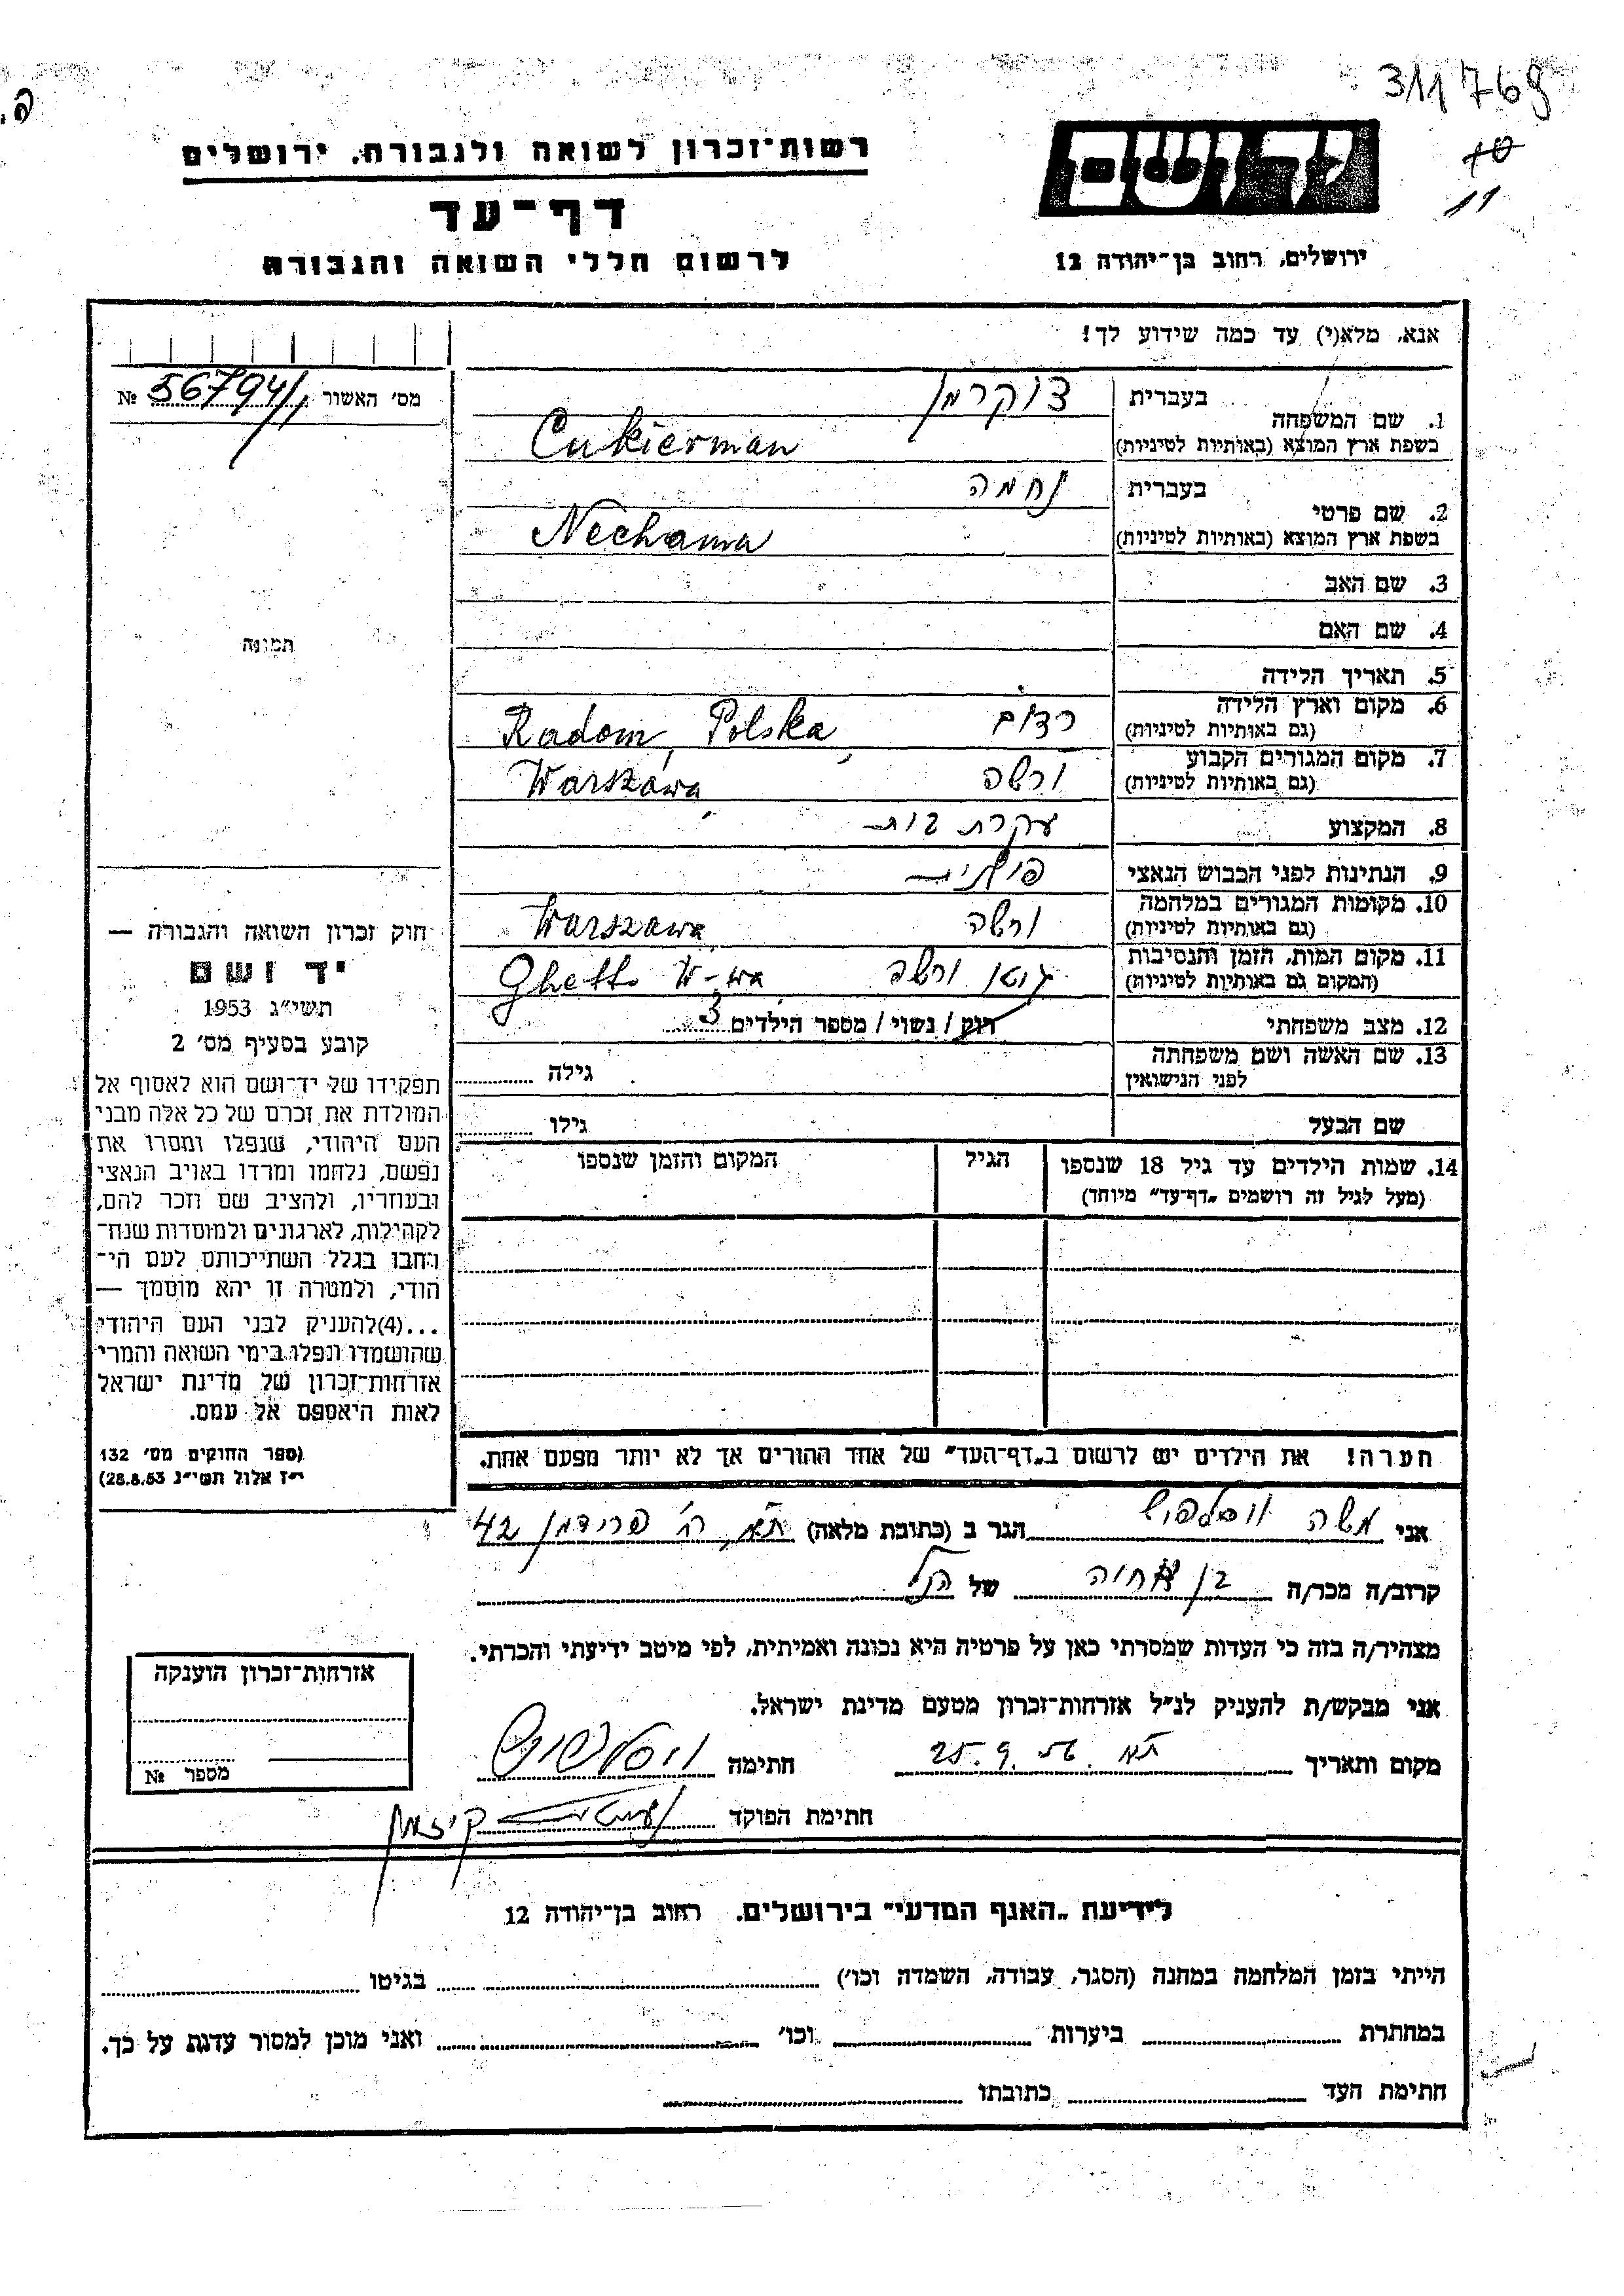 311769
10
11
יד ושם
רשות־זכרון לשואה ולגבורה, ירושלים
דף־עד
לרשום חללי השואה והגבורה
ירושלים, רחוב בן־יהודה 12
אנא, מלא(י) עד כמה שידוע לך!
מס' האשור 56794/ №
1. שם המשפחה בעברית צוקרמן
בשפת ארץ המוצא (באותיות לטיניות) Cukierman
2. שם פרטי בעברית נחמה
בשפת ארץ המוצא (באותיות לטיניות) Nechama
3. שם האב
4. שם האם
5. תאריך הלידה
6. מקום וארץ הלידה (גם באותיות לטיניות) רדום Radom, Polska
7. מקום המגורים הקבוע (גם באותיות לטיניות) ורשה Warszawa
8. המקצוע עקרת בית
9. הנתינות לפני הכבוש הנאצי פולנית
10. מקומות המגורים במלחמה (גם באותיות לטיניות) ורשה Warszawa
11. מקום המות, הזמן והנסיבות (המקום גם באותיות לטיניות) גטו ורשה Ghetto W-wa
12. מצב משפחתי רוק / נשוי / מספר הילדים 3
13. שם האשה ושם משפחתה לפני הנישואין גילה
שם הבעל גילו
14. שמות הילדים עד גיל 18 שנספו הגיל המקום והזמן שנספו
(מעל לגיל זה רושמים „דף־עד" מיוחד)
הערה! את הילדים יש לרשום ב„דף־העד" של אחד ההורים אך לא יותר מפעם אחת.
תמונה
חוק זכרון השואה והגבורה —
יד ושם
תשי"ג 1953
קובע בסעיף מס' 2
תפקידו של יד־ושם הוא לאסוף אל
המולדת את זכרם של כל אלה מבני
העם היהודי, שנפלו ומסרו את
נפשם, נלחמו ומרדו באויב הנאצי
ובעוזריו, ולהציב שם וזכר להם,
לקהילות, לארגונים ולמוסדות שנח־
רבו בגלל השתייכותם לעם הי־
הודי, ולמטרה זו יהא מוסמך —
...(4)להעניק לבני העם היהודי
שהושמדו ונפלו בימי השואה והמרי
אזרחות־זכרון של מדינת ישראל
לאות היאספם אל עמם.
(ספר החוקים מס' 132
י"ז אלול תשי"ג 28.8.53)
אני משה הגר ב (כתובת מלאה) ת"א, רח' פרידמן 42
קרוב/ה מכר/ה בן אחיה של הנ"ל
מצהיר/ה בזה כי העדות שמסרתי כאן על פרטיה היא נכונה ואמיתית, לפי מיטב ידיעתי והכרתי.
אני מבקש/ת להעניק לנ"ל אזרחות־זכרון מטעם מדינת ישראל.
מקום ותאריך ת"א 25.9.56 חתימה
חתימת הפוקד
אזרחות־זכרון הוענקה
מספר №
לידיעת „האגף המדעי" בירושלים, רחוב בן־יהודה 12
הייתי בזמן המלחמה במחנה (הסגר, עבודה, השמדה וכו') בגיטו
במחתרת ביערות וכו' ואני מוכן למסור עדות על כך.
חתימת העד כתובתו